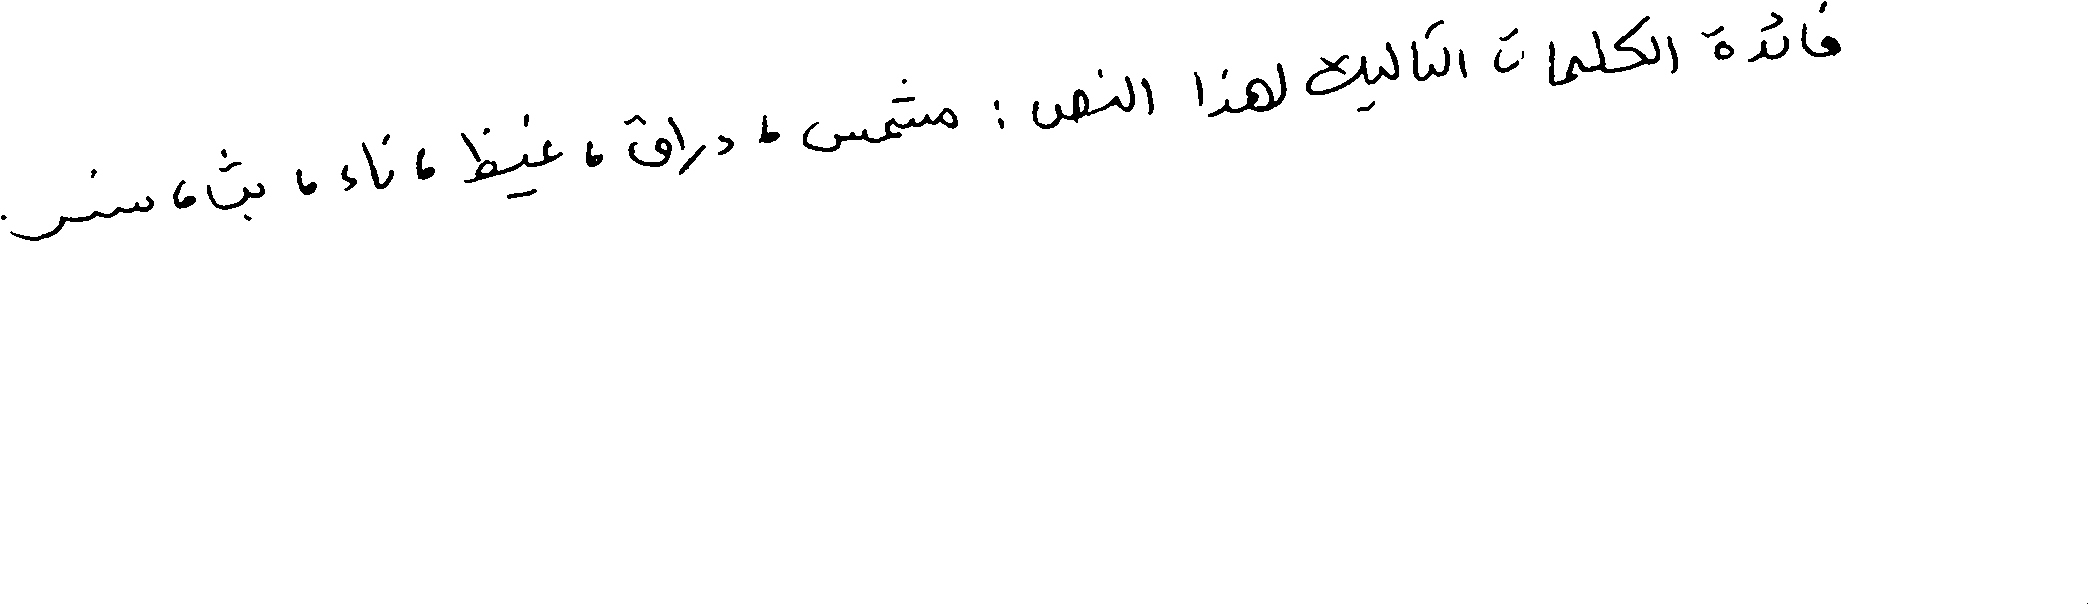 فائدة الكلمات التالية لهذا النص : مشمس ، دراق ، غيظ ، ناء ، بث ،